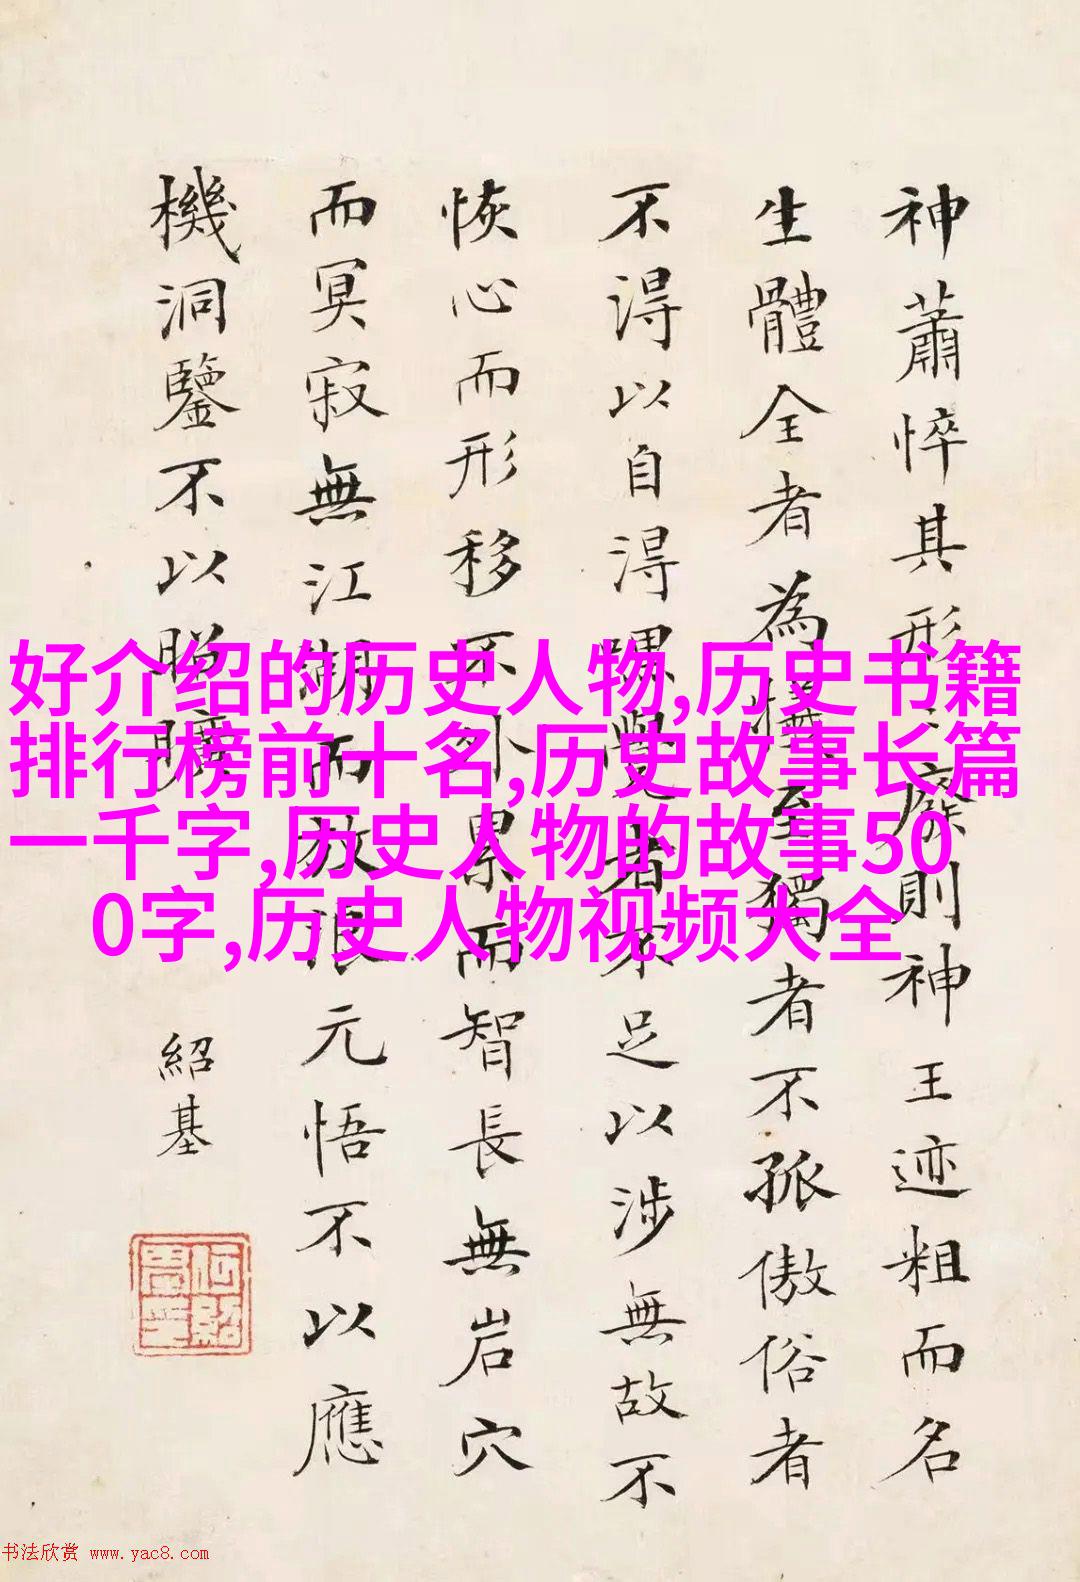 神蕭悴其形廢則神王迹粗而名
生體全者為至獨者不孤傲俗者
不得以自得覺者不足以涉無故不
恢心而形移不外累而智長無岩穴
而冥寂無江湖而放浪元悟不以應
機洞鑒不以曠
紹基
好介绍的历史人物,历史书籍
排行榜前十名,历史故事长篇
一千字,历史人物的故事50
0字,历史人物视频大全
书法欣赏 www.yac8.com